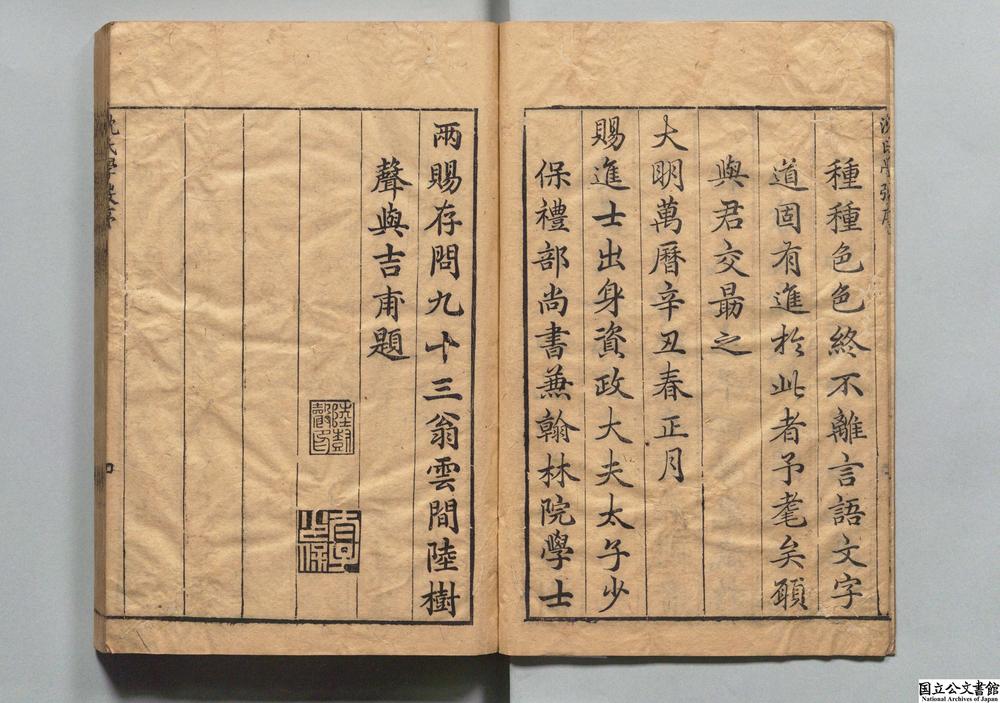 種種色色終不離言語文字
道固有進於此者予耄矣願
與君交勗之
大明萬曆辛丑春正月
賜進士出身資政大夫太子少
保禮部尚書兼翰林院學士
兩賜存問九十三翁雲間陸樹
聲與吉甫題
陸樹聲印
沈氏學弢序
国立公文書館
National Archives of Japan